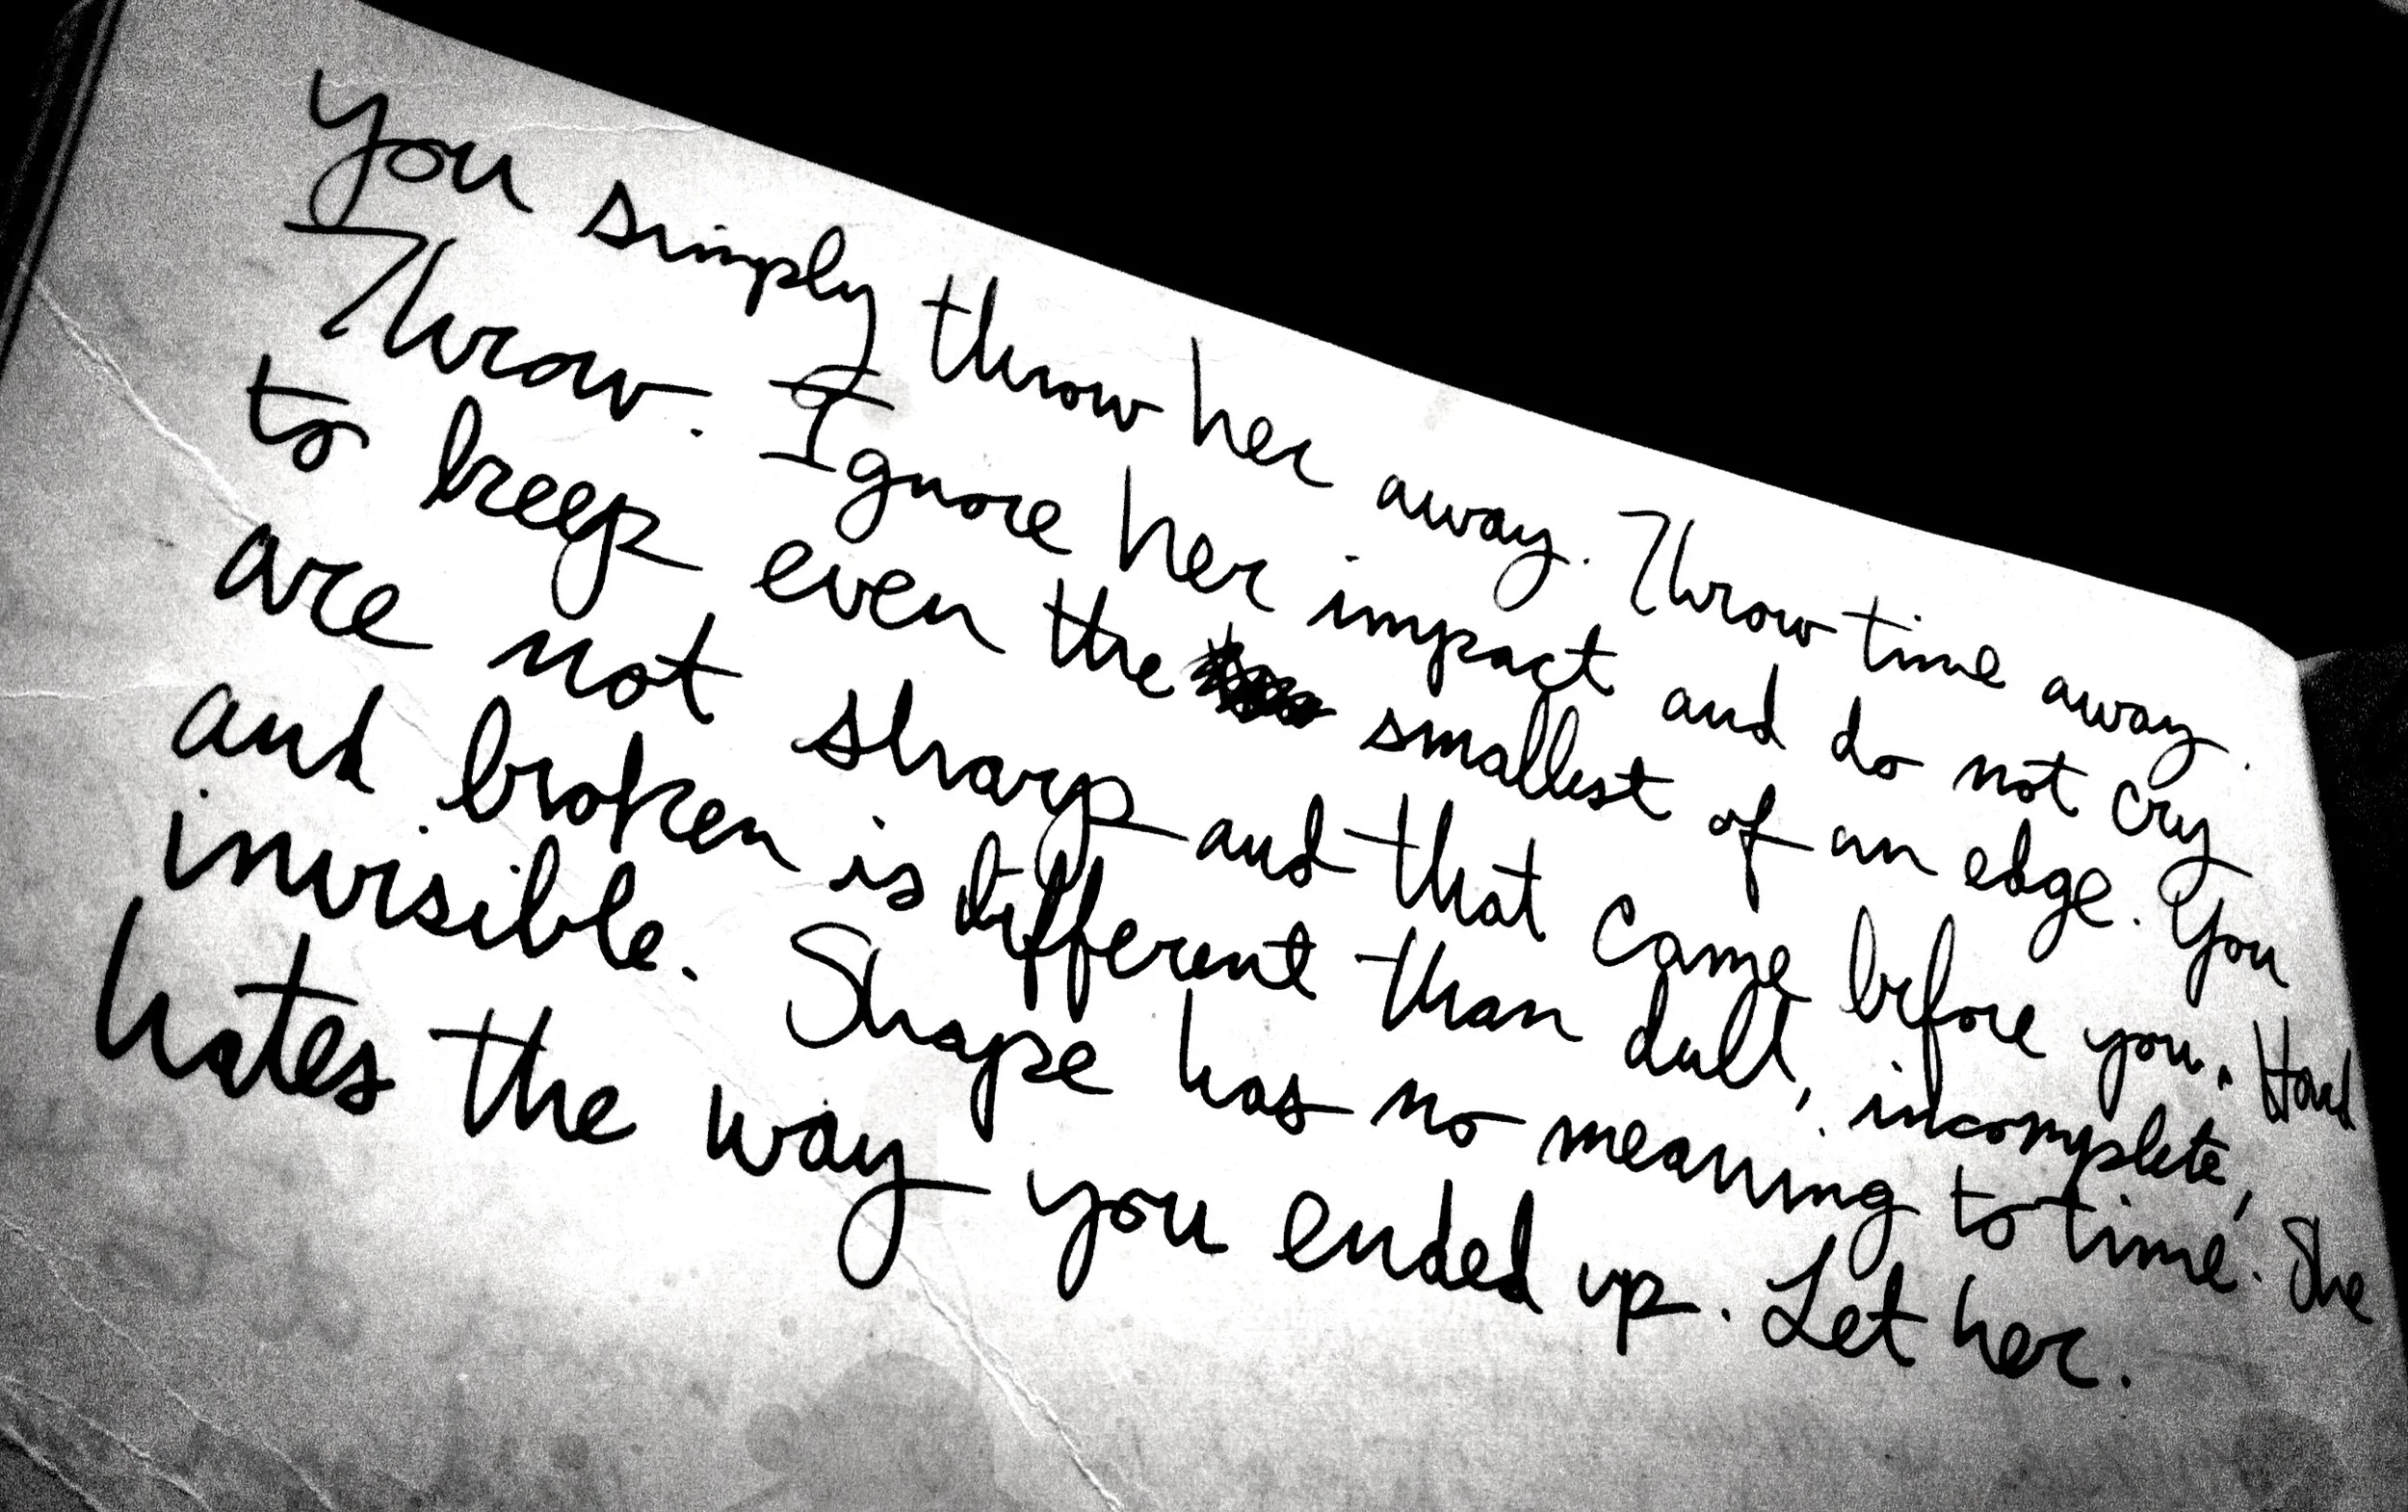 You simply throw her away. Throw time away.
Throw. Ignore her impact and do not cry
to keep even the smallest of an edge. You
are not sharp and that came before you. Hard
and broken is different than dull, incomplete,
invisible. Shape has no meaning to time. She
hates the way you ended up. Let her.